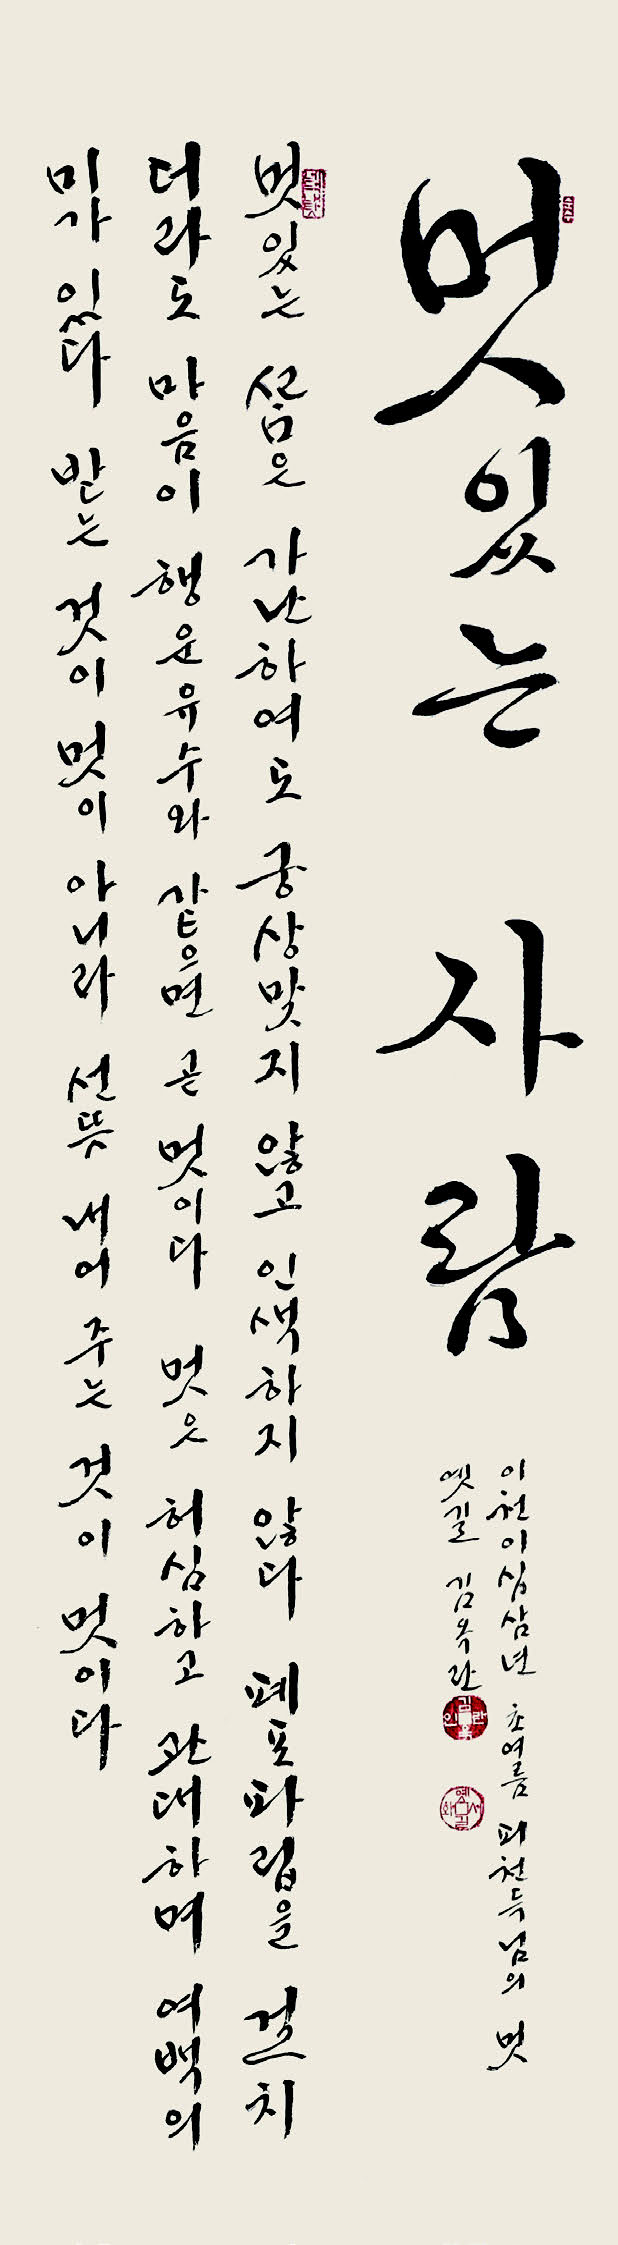 멋있는 사람
이천이십삼년 초여름 피천득님의 멋
옛길 김옥란
멋있는 사람은 가난하여도 궁상맞지 않고 인색하지 않다 폐포파립을 걸치
더라도 마음이 행운유수와 같으면 곧 멋이다 멋은 허심하고 관대하며 여백의
미가 있다 받는 것이 멋이 아니라 선뜻 내어 주는 것이 멋이다